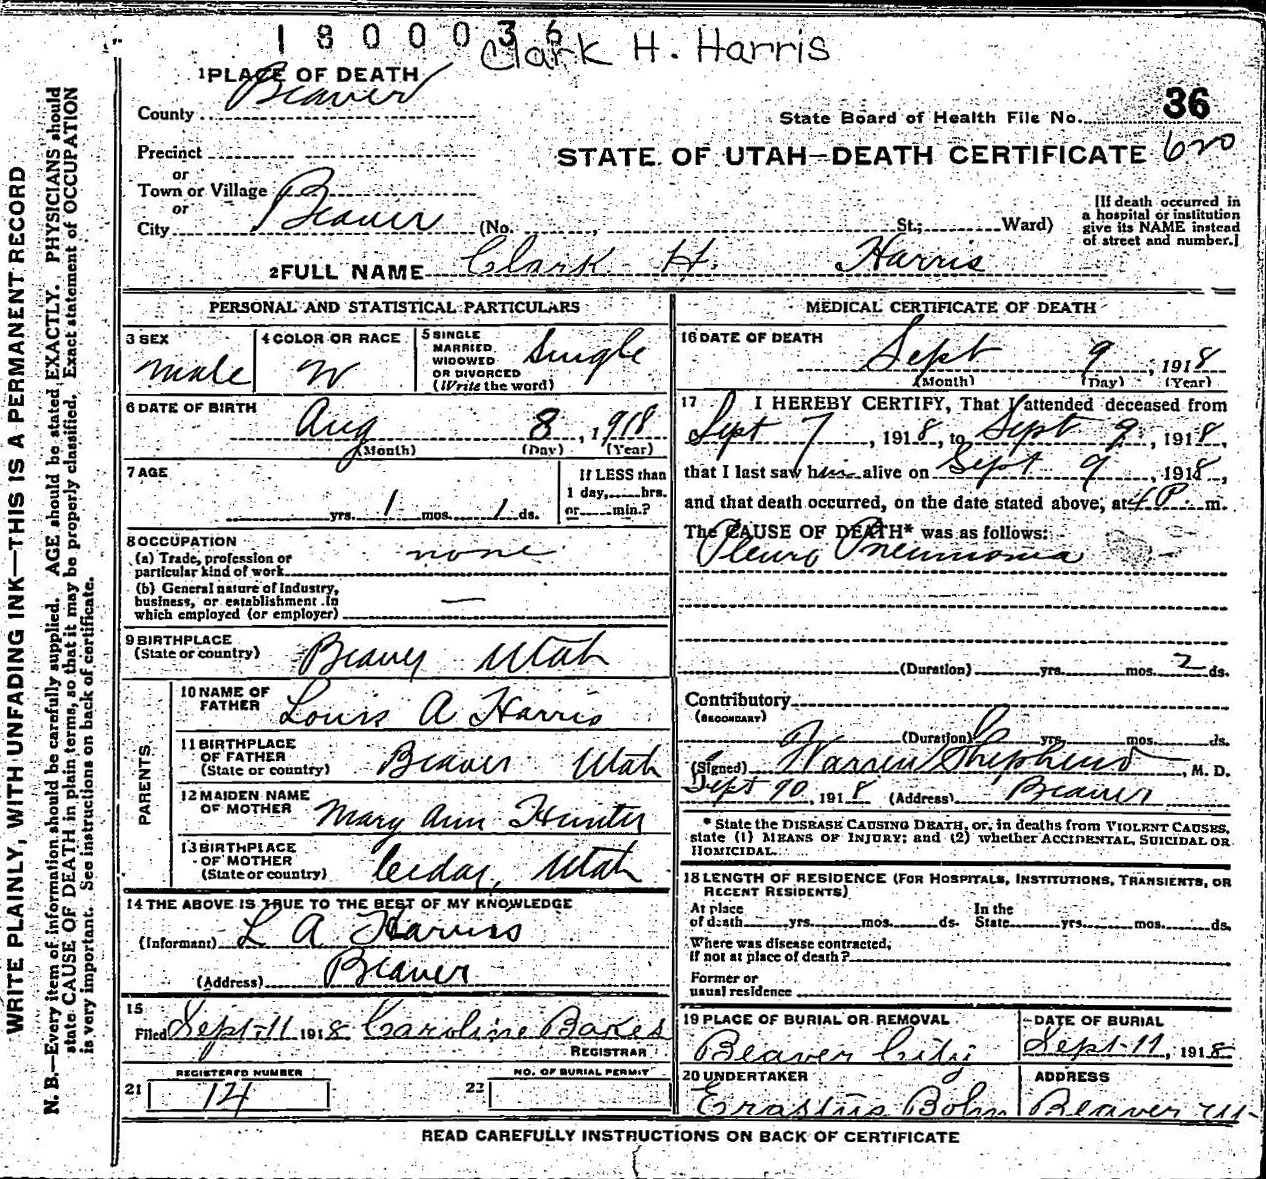 1800036 Clark H. Harris
1 PLACE OF DEATH
County Beaver
State Board of Health File No. 36
Precinct
STATE OF UTAH—DEATH CERTIFICATE 620
or
Town or Village
or
City Beaver (No. , St.; Ward)
[If death occurred in
a hospital or institution
give its NAME instead
of street and number.]
2 FULL NAME Clark H. Harris
PERSONAL AND STATISTICAL PARTICULARS
3 SEX male
4 COLOR OR RACE W
5 SINGLE
MARRIED
WIDOWED
OR DIVORCED
(Write the word) Single
6 DATE OF BIRTH
Aug 8, 1918
(Month) (Day) (Year)
7 AGE
yrs. 1 mos. 1 ds.
If LESS than
1 day, hrs.
or min.?
8 OCCUPATION
(a) Trade, profession or
particular kind of work none
(b) General nature of Industry,
business, or establishment in
which employed (or employer) —
9 BIRTHPLACE
(State or country) Beaver Utah
PARENTS
10 NAME OF
FATHER Louis A Harris
11 BIRTHPLACE
OF FATHER
(State or country) Beaver Utah
12 MAIDEN NAME
OF MOTHER Mary Ann Hunter
13 BIRTHPLACE
OF MOTHER
(State or country) Cedar, Utah
14 THE ABOVE IS TRUE TO THE BEST OF MY KNOWLEDGE
(Informant) L A Harris
(Address) Beaver
15
Filed Sept-11 1918 Caroline Bakes
REGISTRAR
REGISTERED NUMBER
21 14
NO. OF BURIAL PERMIT
22
MEDICAL CERTIFICATE OF DEATH
16 DATE OF DEATH
Sept 9, 1918
(Month) (Day) (Year)
17 I HEREBY CERTIFY, That I attended deceased from
Sept 7, 1918, to Sept 9, 1918,
that I last saw him alive on Sept 9, 1918,
and that death occurred, on the date stated above, at 4 P. m.
The CAUSE OF DEATH* was as follows:
Pleuro Pneumonia
(Duration) yrs. mos. 2 ds.
Contributory
(SECONDARY)
(Duration) yrs. mos. ds.
(Signed) Warren Shepherd, M. D.
Sept 10, 1918 (Address) Beaver
* State the DISEASE CAUSING DEATH, or, in deaths from VIOLENT CAUSES,
state (1) MEANS OF INJURY; and (2) whether ACCIDENTAL, SUICIDAL OR
HOMICIDAL.
18 LENGTH OF RESIDENCE (FOR HOSPITALS, INSTITUTIONS, TRANSIENTS, OR
RECENT RESIDENTS)
At place In the
of death yrs. mos. ds. State yrs. mos. ds.
Where was disease contracted,
if not at place of death?
Former or
usual residence
19 PLACE OF BURIAL OR REMOVAL
Beaver City
DATE OF BURIAL
Sept-11, 1918
20 UNDERTAKER
Erastus Bohn
ADDRESS
Beaver U-
READ CAREFULLY INSTRUCTIONS ON BACK OF CERTIFICATE
WRITE PLAINLY, WITH UNFADING INK—THIS IS A PERMANENT RECORD
N. B.—Every item of information should be carefully supplied. AGE should be stated EXACTLY. PHYSICIANS should
state CAUSE OF DEATH in plain terms, so that it may be properly classified. Exact statement of OCCUPATION
is very important. See instructions on back of certificate.